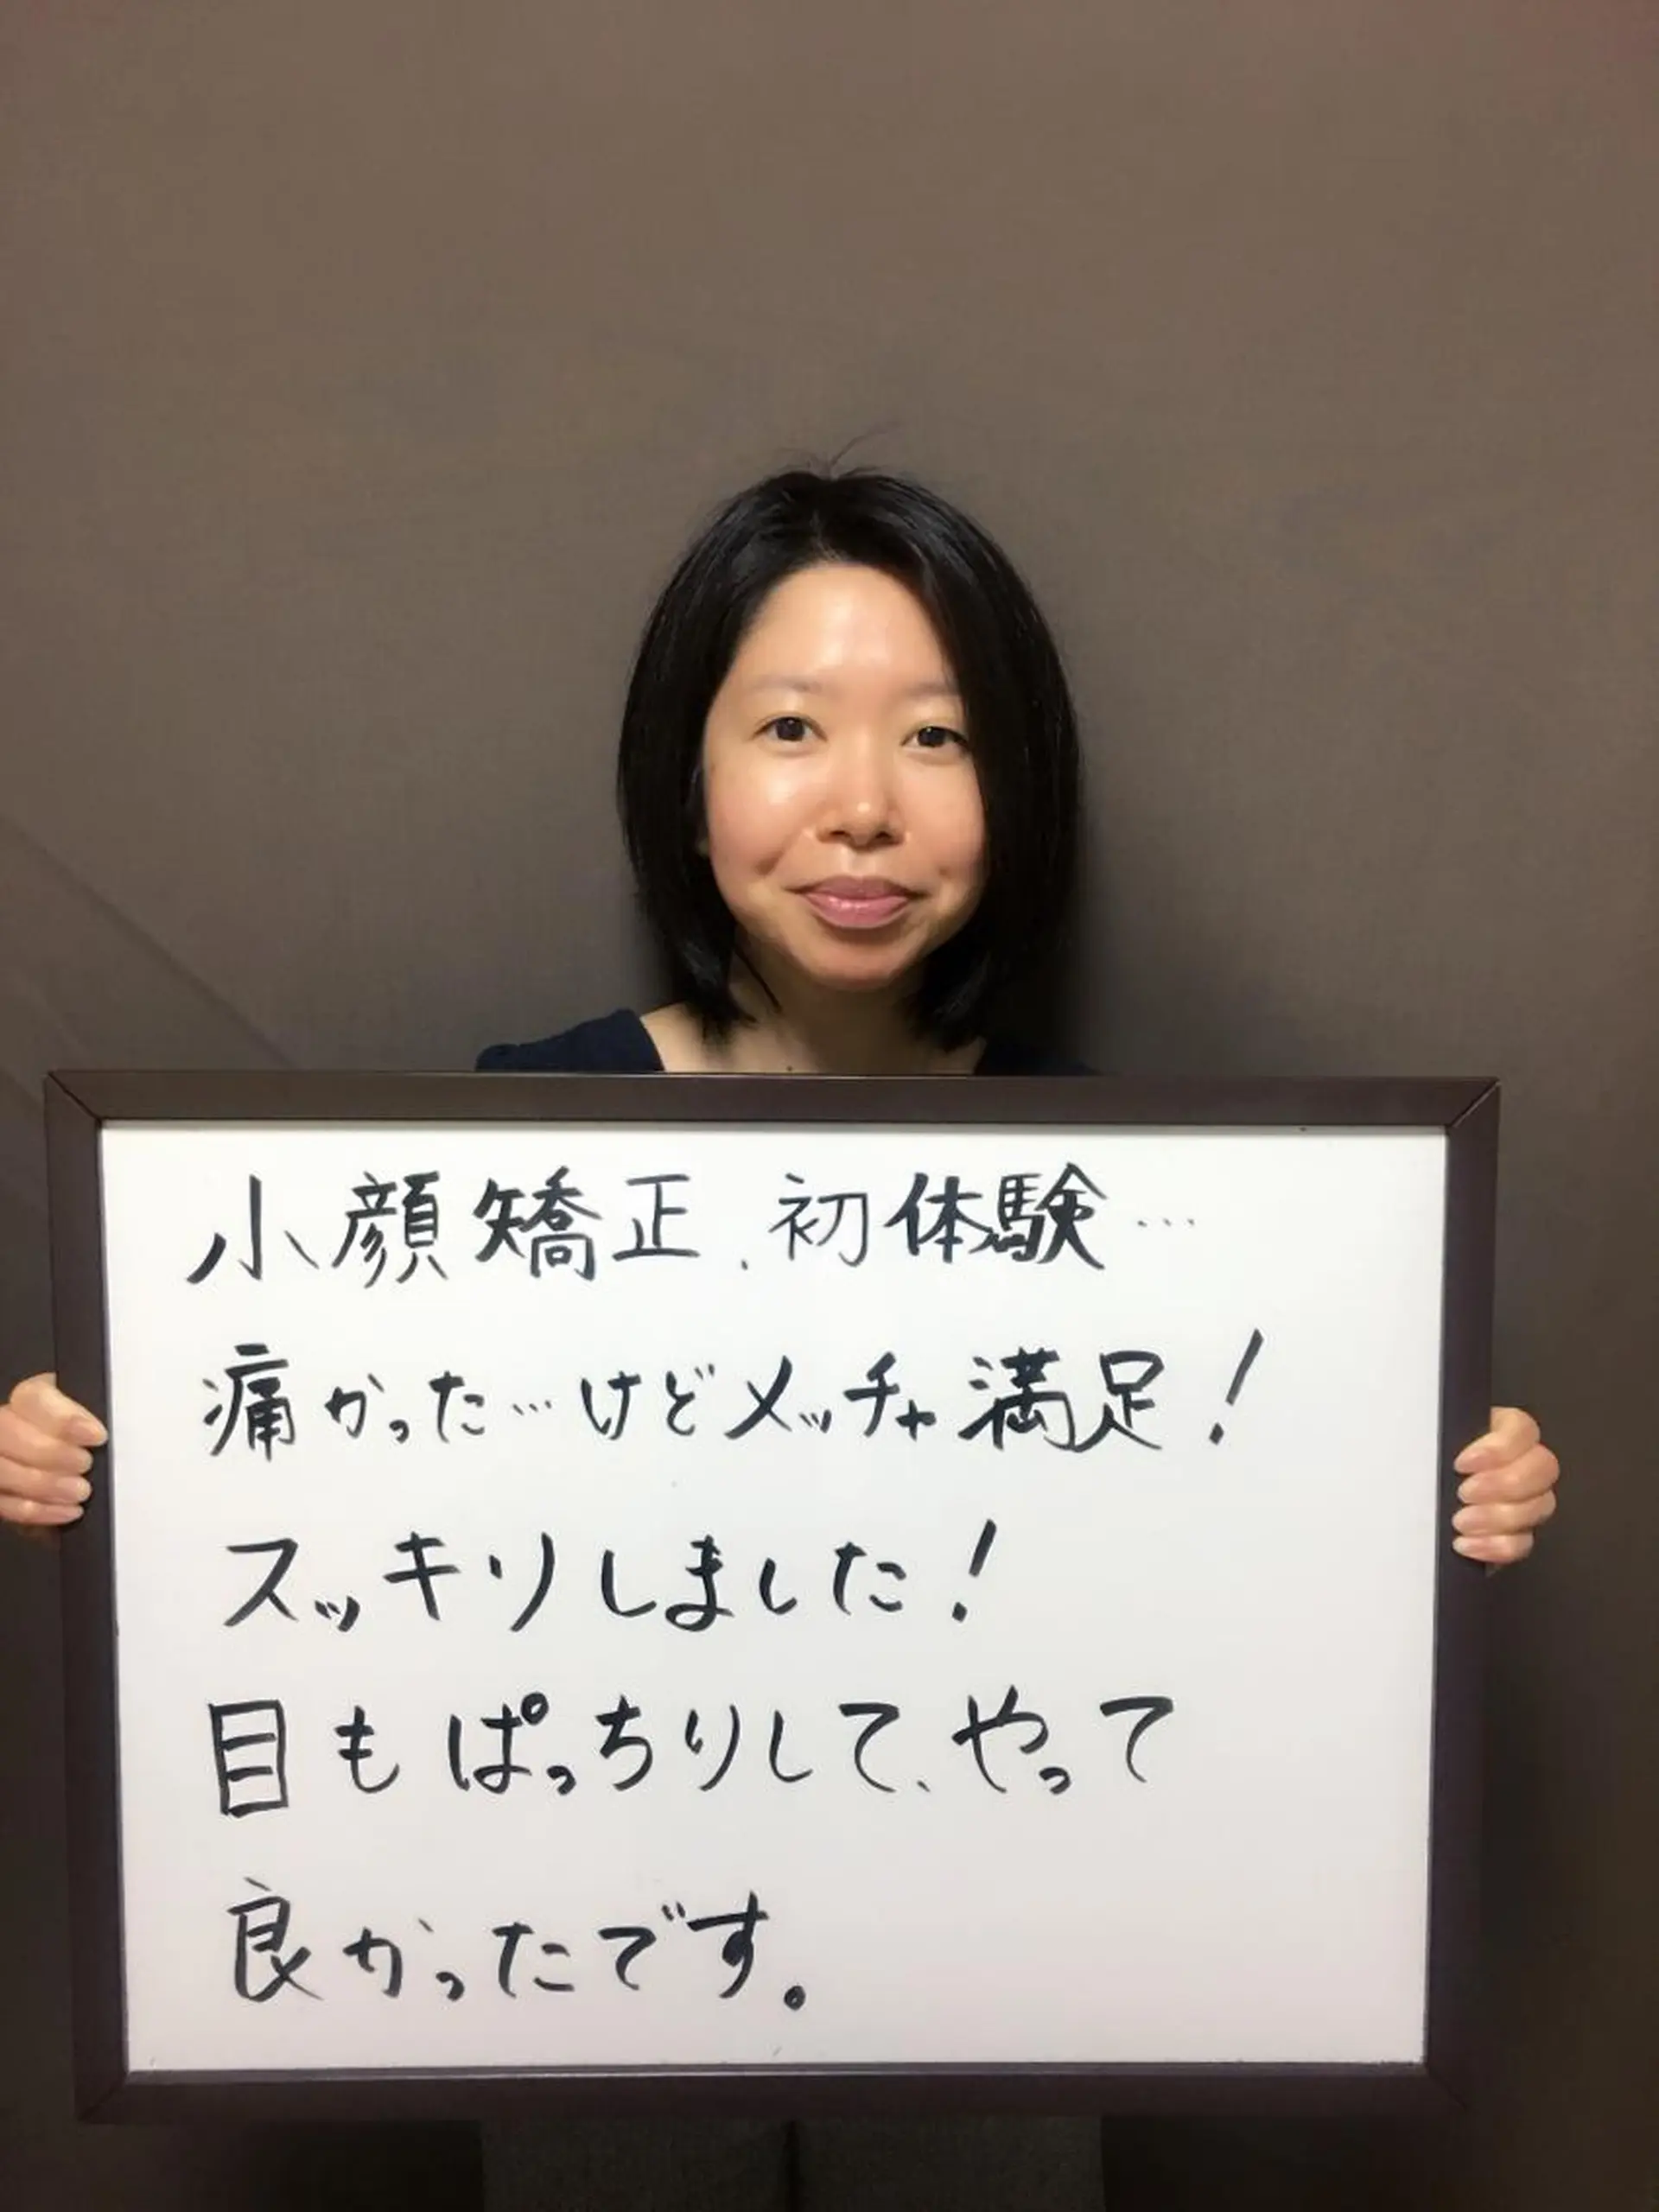 小顔矯正、初体験…
痛かった…けどメッチャ満足！
スッキリしました！
目もぱっちりして、やって
良かったです。